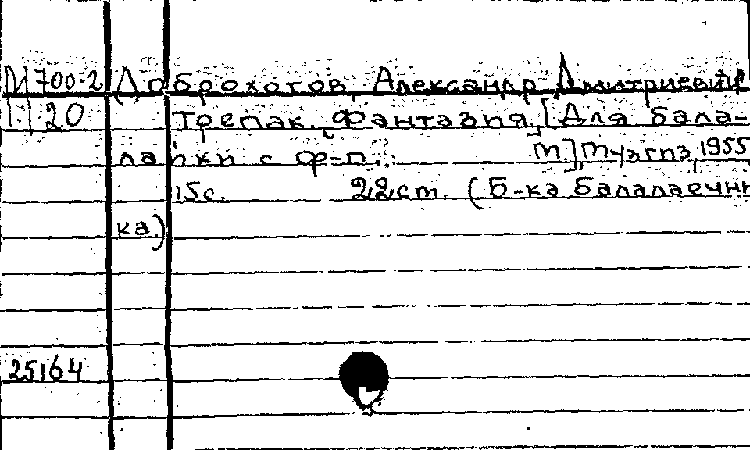 М 700-2 Доброхотов, Александр Дмитриевич
1.) 20 Трепак. Фантазия. [Для бала-
лайки с ф-п. М.] Музгиз, 1955
15с. 22см. (Б-ка балалаечни
ка.)
25164